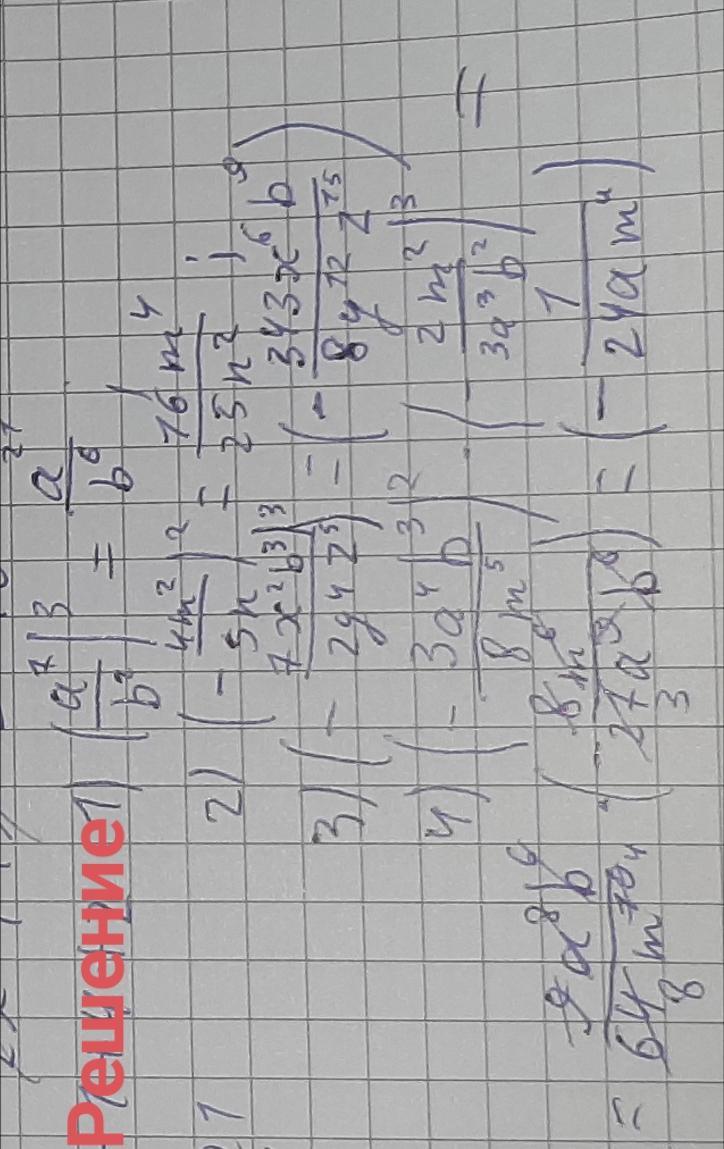 Решение
1) (a^7/b^2)^3 = a^21/b^6
2) (-4m^2/5n)^2 = 16m^4/25n^2;
3) (-7x^2b^3/2y^4z^5)^3 = (-343x^6b^9/8y^12z^15)
4) (-3a^4b^3/8m^5)^2 · (-2m^2/3a^3b^2)^3 =
= 9a^8b^6/64m^10 · (-8m^6/27a^9b^6) = (-1/24am^4)